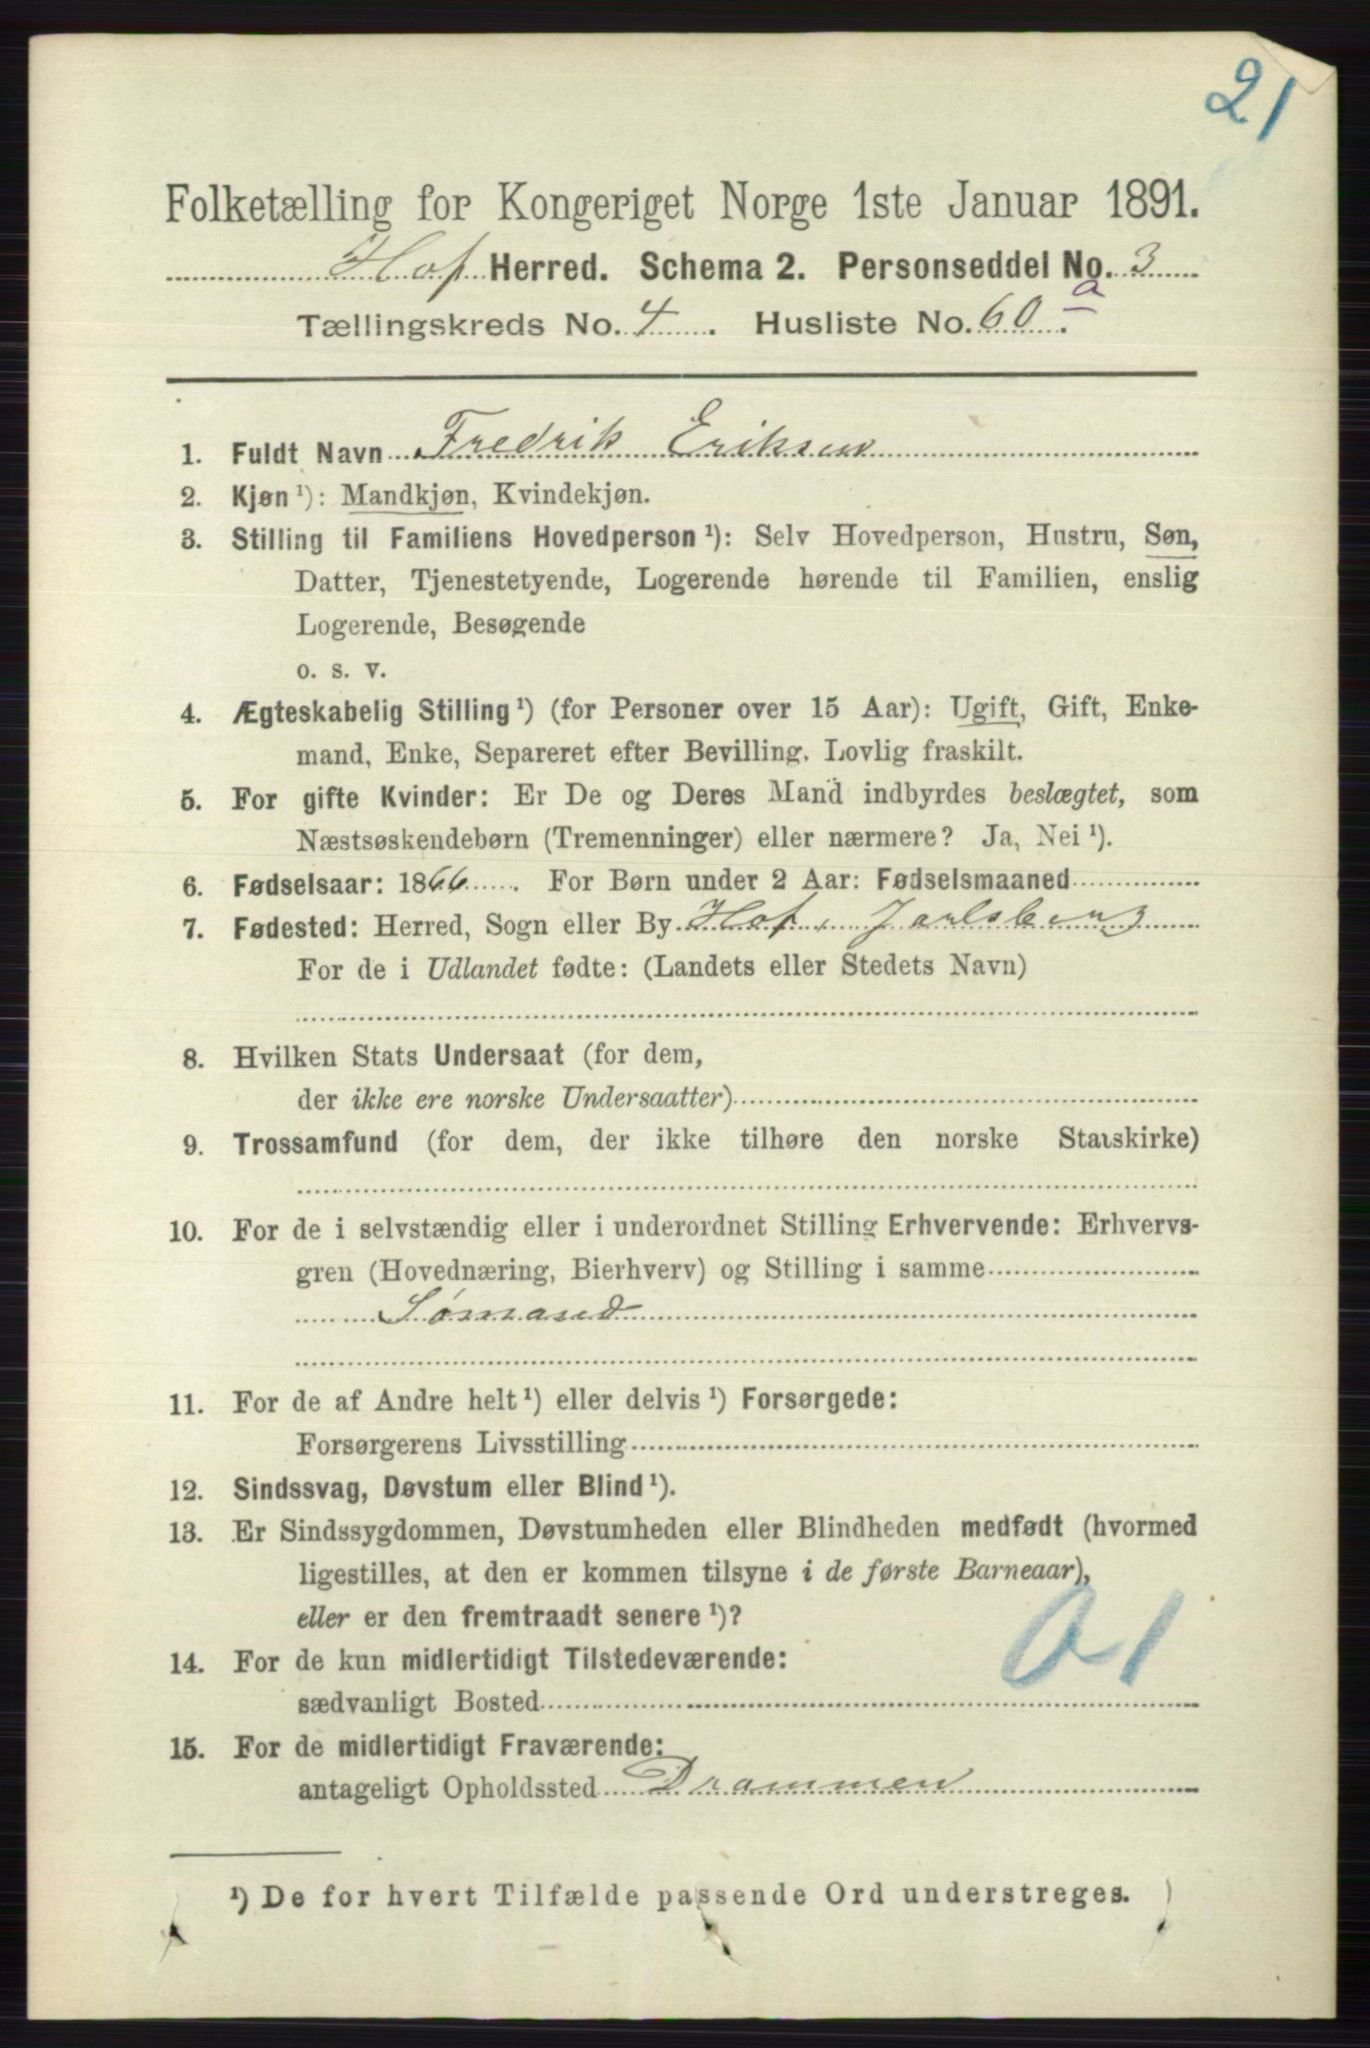 21
Folketælling for Kongeriget Norge 1ste Januar 1891.
Hof Herred. Schema 2. Personseddel No. 3
Tællingskreds No. 4. Husliste No. 60 a.
1. Fuldt Navn Fredrik Eriksen
2. Kjøn ¹): Mandkjøn, Kvindekjøn.
3. Stilling til Familiens Hovedperson ¹): Selv Hovedperson, Hustru, Søn,
Datter, Tjenestetyende, Logerende hørende til Familien, enslig
Logerende, Besøgende
o. s. v.
4. Ægteskabelig Stilling ¹) (for Personer over 15 Aar): Ugift, Gift, Enke-
mand, Enke, Separeret efter Bevilling. Lovlig fraskilt.
5. For gifte Kvinder: Er De og Deres Mand indbyrdes beslægtet, som
Næstsøskendebørn (Tremenninger) eller nærmere? Ja, Nei ¹).
6. Fødselsaar: 1866. For Børn under 2 Aar: Fødselsmaaned
7. Fødested: Herred, Sogn eller By Hof, Jarlsberg
For de i Udlandet fødte: (Landets eller Stedets Navn)
8. Hvilken Stats Undersaat (for dem,
der ikke ere norske Undersaatter)
9. Trossamfund (for dem, der ikke tilhøre den norske Statskirke)
10. For de i selvstændig eller i underordnet Stilling Erhvervende: Erhvervs-
gren (Hovednæring, Bierhverv) og Stilling i samme
Sømand
11. For de af Andre helt ¹) eller delvis ¹) Forsørgede:
Forsørgerens Livsstilling
12. Sindssvag, Døvstum eller Blind ¹).
13. Er Sindssygdommen, Døvstumheden eller Blindheden medfødt (hvormed
ligestilles, at den er kommen tilsyne i de første Barneaar),
eller er den fremtraadt senere ¹)?
14. For de kun midlertidigt Tilstedeværende:
sædvanligt Bosted
01
15. For de midlertidigt Fraværende:
antageligt Opholdssted Drammen
¹) De for hvert Tilfælde passende Ord understreges.